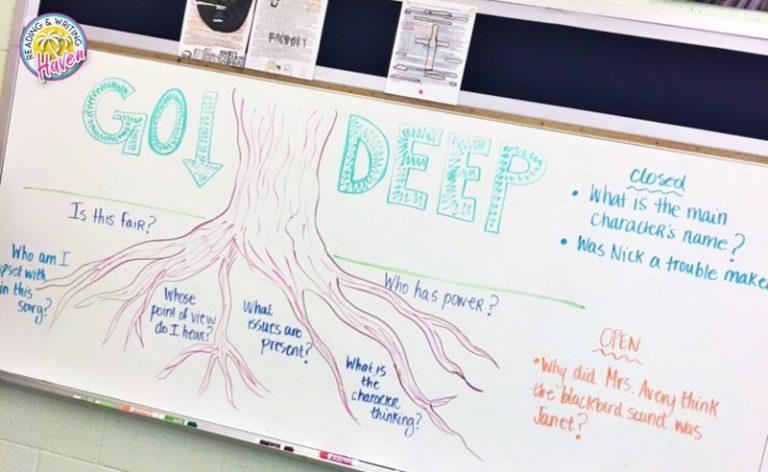 READING & WRITING
Haven
FACTORY
GO DEEP
Is this fair?
Who am I
upset with
in this
story?
Whose
point of view
do I hear?
What
issues are
present?
What is
the
character
thinking?
Who has power?
closed
• What is the main
character's name?
• Was Nick a trouble make
OPEN
• Why did Mrs. Avery think
the blackbird sound was
Janet?